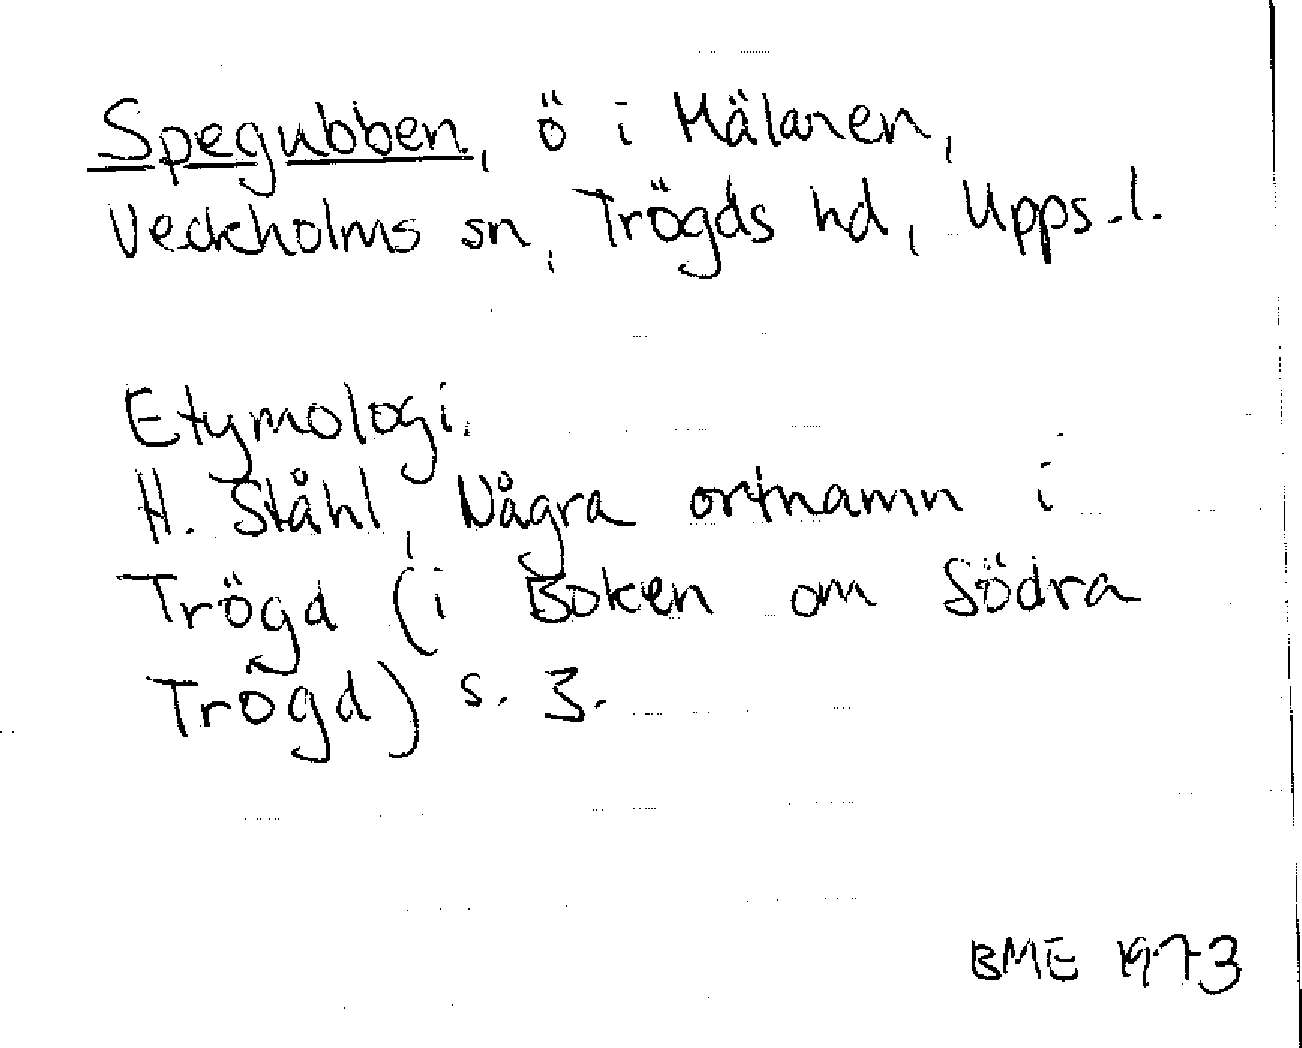 Spegubben, ö i Mälaren,
Veckholms sn, Trögds hd, Upps.l.
Etymologi.
H. Ståhl, Några ortnamn i
Trögd (i Boken om Södra
Trögd) s. 3.
BME 1973